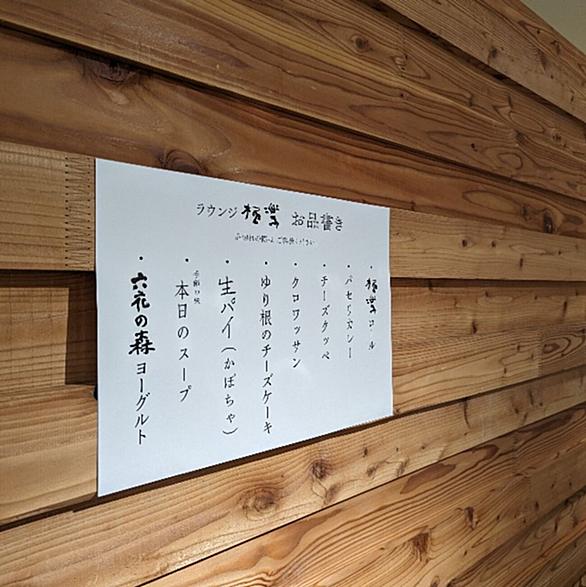 ラウンジ 極楽 お品書き
・極楽ロール
・チーズクッペ
・クロワッサン
・ゆり根のチーズケーキ
・生パイ(かぼちゃ)
・本日のスープ
・六花の森ヨーグルト